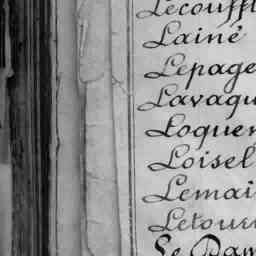 Lecouffl
Lainé
Lepage
Lavaqu
Loquen
Loisel
Lemai
Letour
Le Dam